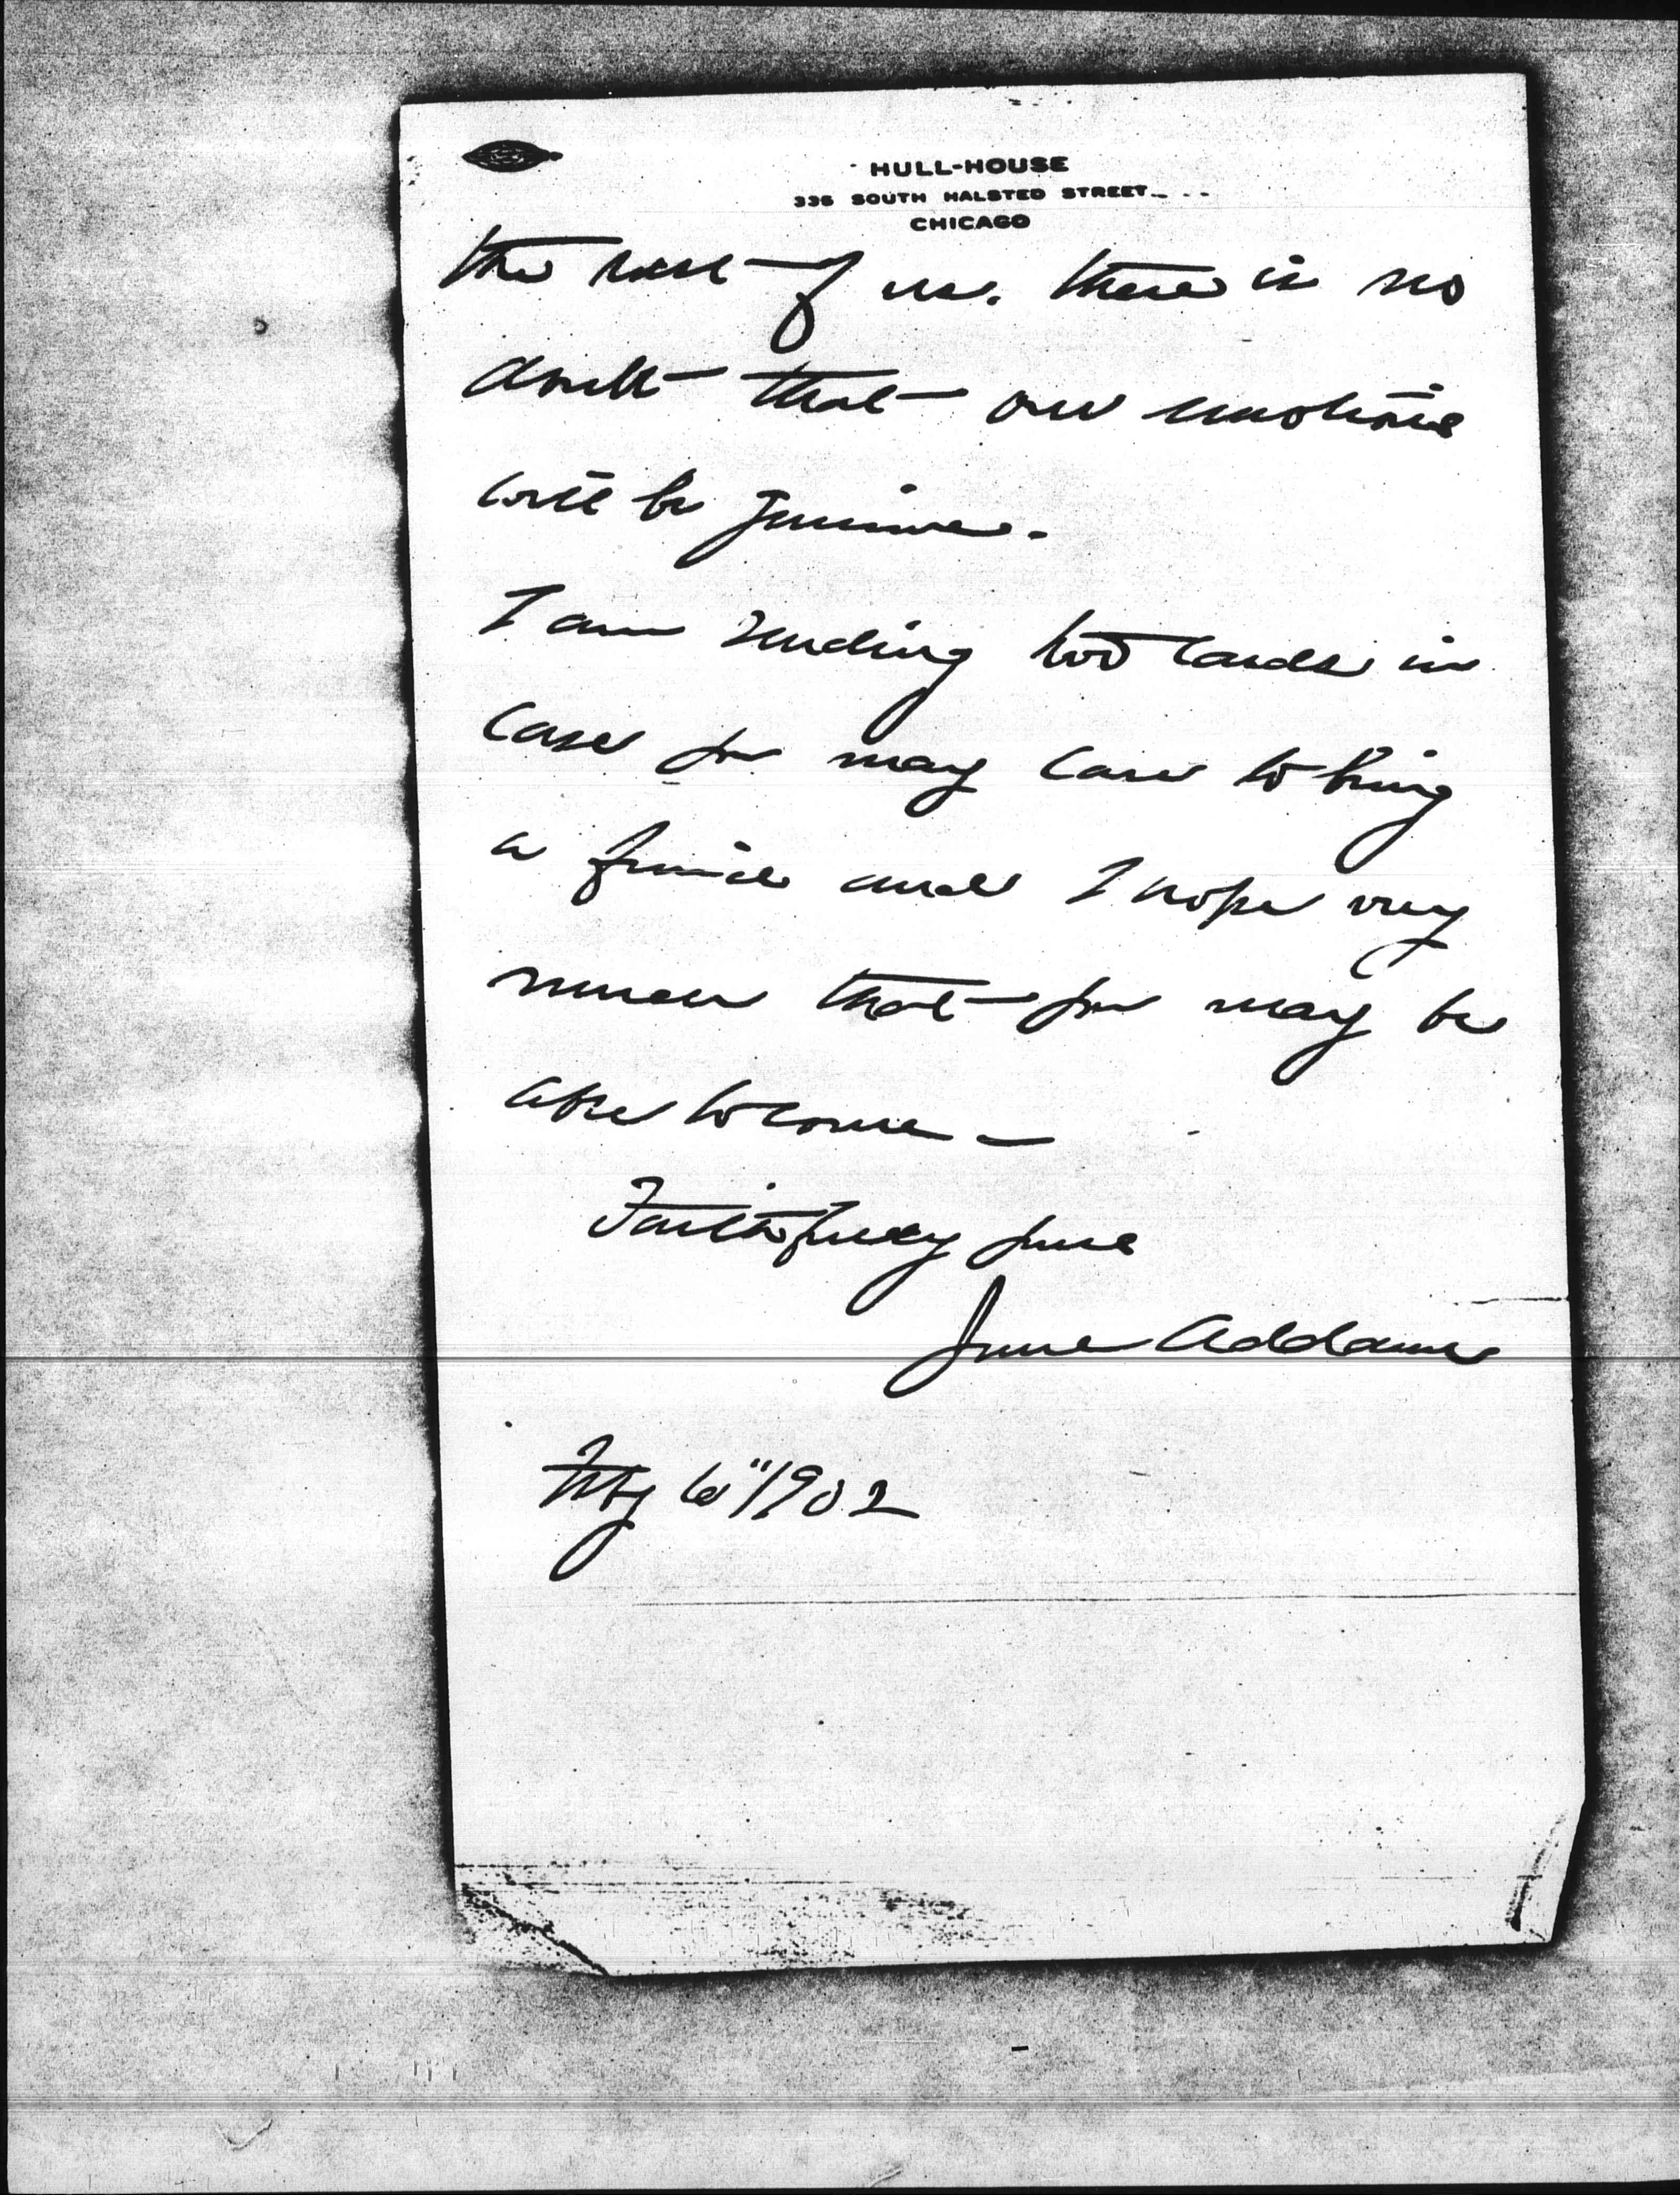 HULL-HOUSE
335 SOUTH HALSTED STREET
CHICAGO
the rest of us. there is no
doubt that our emotions
will be genuine.
I am sending two cards in
case you may care to bring
a friend and I hope very
much that you may be
able to come —
Faithfully yours
Jane Addams
6" 1902